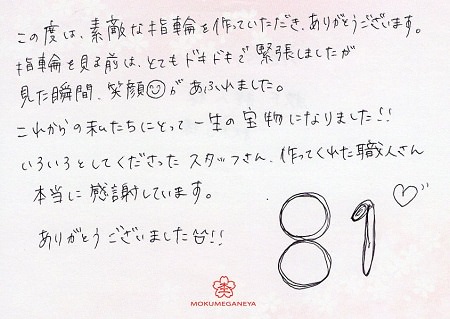 この度は、素敵な指輪を作っていただき、ありがとうございます。
指輪を見る前は、とてもドキドキで緊張しましたが
見た瞬間、笑顔☺があふれました。
これからの私たちにとって一生の宝物になりました!!
いろいろとしてくださったスタッフさん、作ってくれた職人さん
本当に感謝しています。
ありがとうございました!!
81
MOKUMEGANEYA